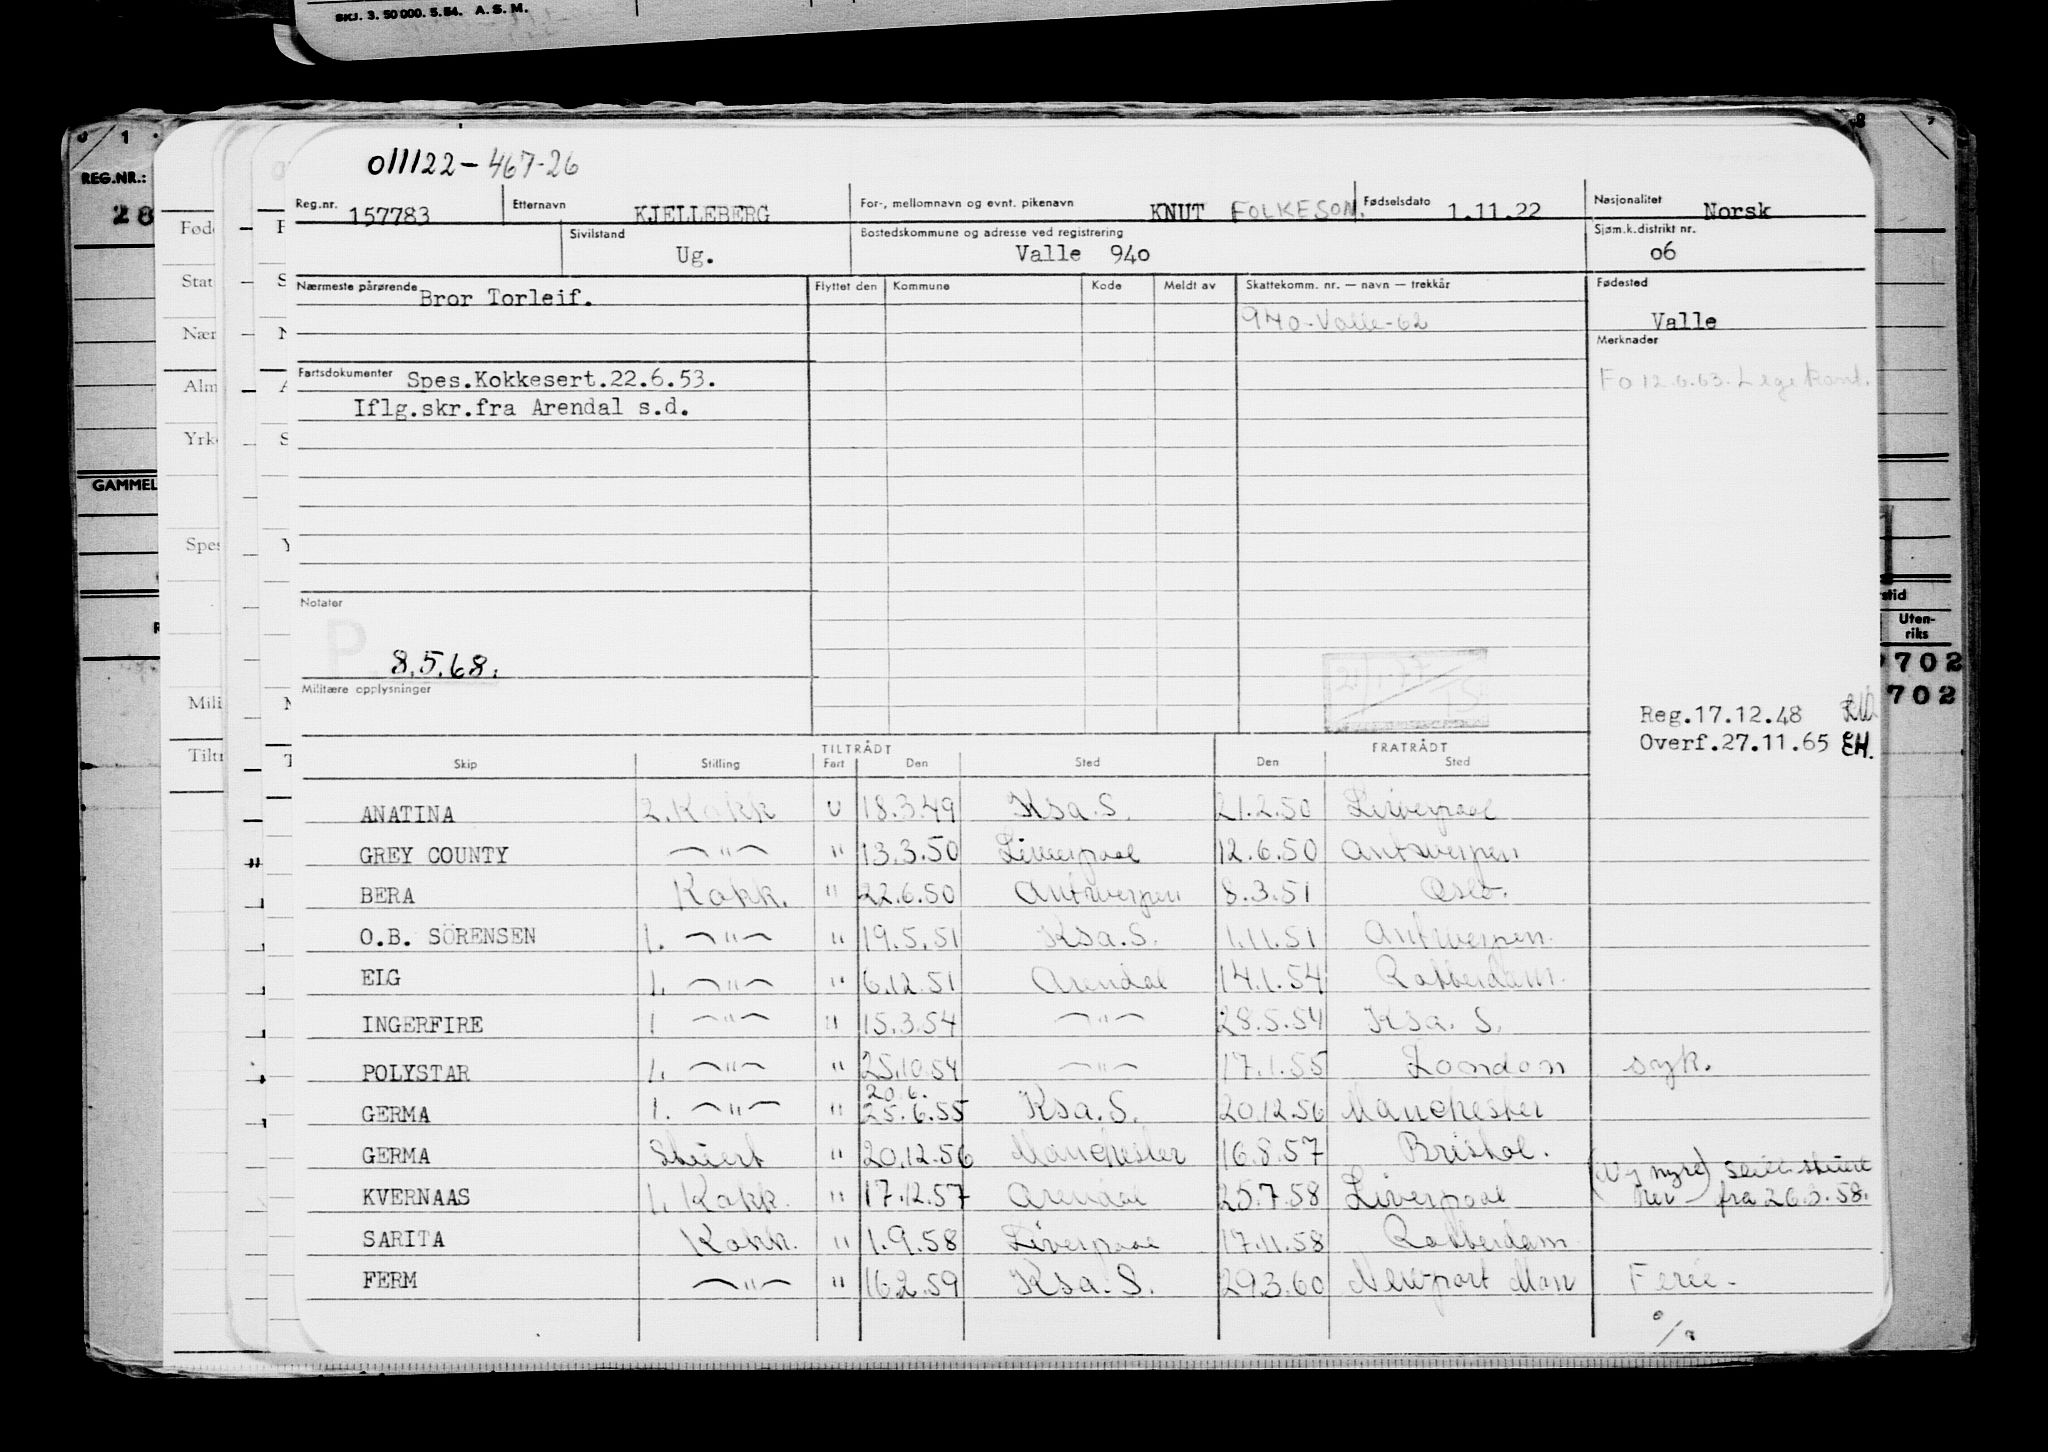 SKJ. 3. 50 000. 5. 54. A. S. M.
011122-467-26
Reg.nr. 157783 Etternavn KJELLEBERG For-, mellomnavn og evnt. pikenavn KNUT FOLKESON. Fødselsdato 1.11.22 Nasjonalitet Norsk
Sivilstand Ug. Bostedskommune og adresse ved registrering Valle 940 Sjøm.k.distrikt nr. 06
Nærmeste pårørende Bror Torleif. Flyttet den Kommune Kode Meldt av Skattekomm. nr. — navn — trekkår Fødested
940-Valle-62 Valle
Merknader
Fartsdokumenter Spes.Kokkesert.22.6.53. Fo 12.6.63. Lege
Iflg.skr.fra Arendal s.d.
Notater
P
8.5.68.
Militære opplysninger
Reg.17.12.48
Overf.27.11.65 EH.
TILTRÅDT FRATRÅDT
Skip Stilling Fart Den Sted Den Sted
ANATINA 2. Kokk U 18.3.49 Ksa. S. 21.2.50 Liverpool
GREY COUNTY —"— " 13.3.50 Liverpool 12.6.50 Antwerpen
BERA Kokk. " 22.6.50 Antwerpen 8.3.51 Oslo.
O.B. SÖRENSEN 1. —"— " 19.5.51 Ksa. S. 1.11.51 Antwerpen.
ELG 1. —"— " 6.12.51 Arendal 14.1.54 Rotterdam.
INGERFIRE 1 —"— " 15.3.54 —"— 28.5.54 Ksa. S.
POLYSTAR 1. —"— " 25.10.54 —"— 17.1.55 London syk.
20.6.
GERMA 1. —"— " 25.6.55 Ksa. S. 20.12.56 Manchester
GERMA Stuert " 20.12.56 Manchester 16.8.57 Bristol.
KVERNAAS 1. Kokk. " 17.12.57 Arendal 25.7.58 Liverpool fra 26.3.58.
SARITA Kokk. " 1.9.58 Liverpool 17.11.58 Rotterdam
FERM —"— " 16.2.59 Ksa. S. 29.3.60 Newport Mon Ferie-
REG.NR.:
28
GAMMEL
Uten-
riks
702
702